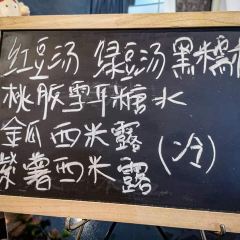 红豆汤 绿豆汤 黑糯
桃胶雪耳糖水
金瓜西米露
紫薯西米露 (冷)